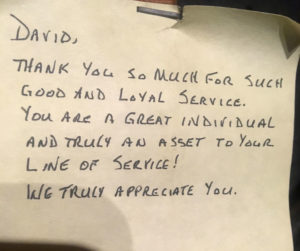 DAVID,
THANK YOU SO MUCH FOR SUCH
GOOD AND LOYAL SERVICE.
YOU ARE A GREAT INDIVIDUAL
AND TRULY AN ASSET TO YOUR
LINE OF SERVICE!
WE TRULY APPRECIATE YOU.